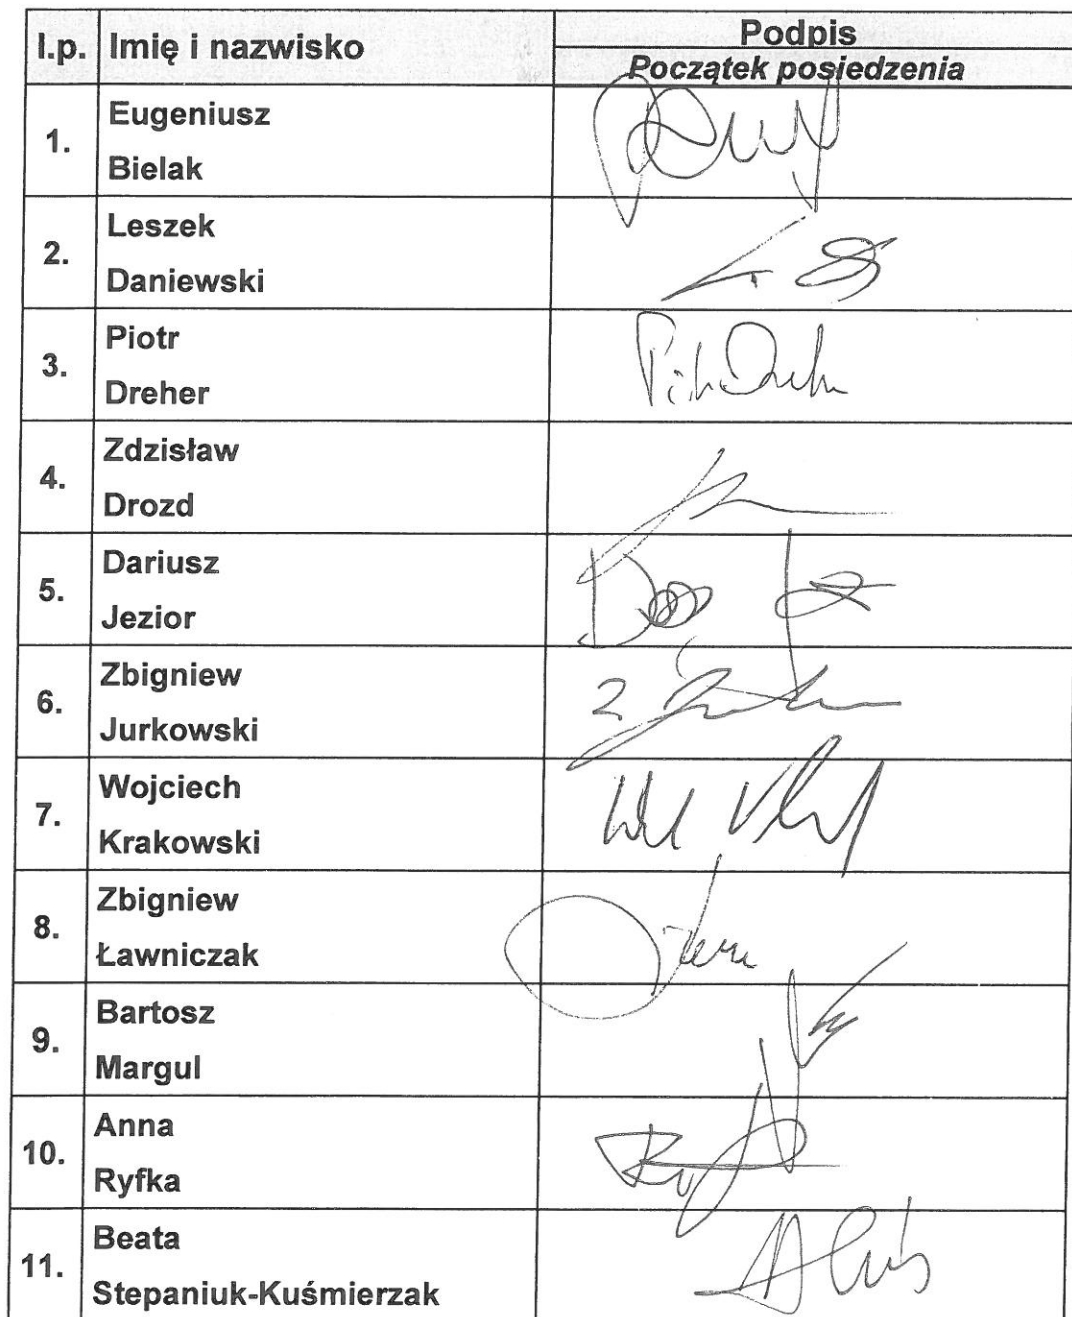 l.p. Imię i nazwisko Podpis
Początek posiedzenia
1. Eugeniusz
Bielak
2. Leszek
Daniewski
3. Piotr
Dreher
4. Zdzisław
Drozd
5. Dariusz
Jezior
6. Zbigniew
Jurkowski
7. Wojciech
Krakowski
8. Zbigniew
Ławniczak
9. Bartosz
Margul
10. Anna
Ryfka
11. Beata
Stepaniuk-Kuśmierzak